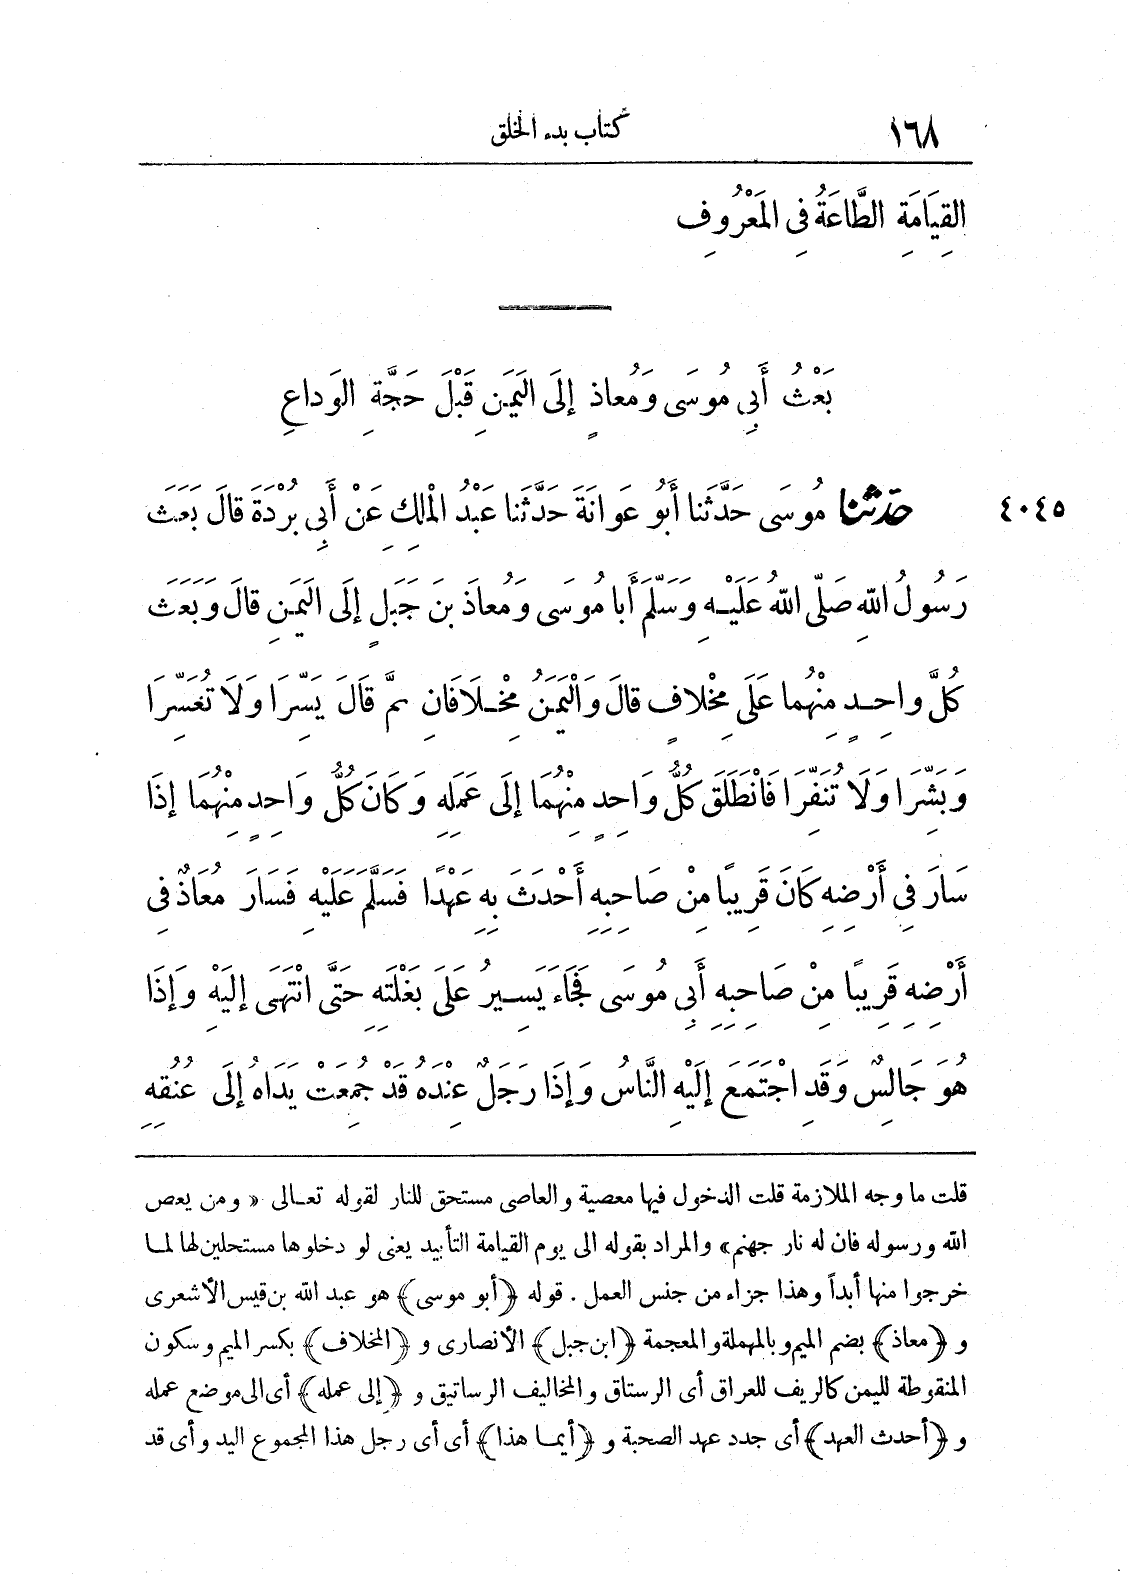 ١٦٨
كتاب بدء الخلق
القِيَامَةِ الطَّاعَةُ فِي المَعْرُوفِ
بَعْثُ أَبِي مُوسَى وَمُعاذٍ إلَى اليَمَنِ قَبْلَ حَجَّةِ الوَداعِ
٤٠٤٥
حدّثنا مُوسَى حَدَّثَنا أَبُو عَوانَةَ حَدَّثَنا عَبْدُ الْمَلِكِ عَنْ أَبِي بُرْدَةَ قالَ بَعَثَ
رَسُولُ اللهِ صَلَّى اللهُ عَلَيْهِ وَسَلَّمَ أَبا مُوسَى وَمُعاذَ بنَ جَبَلٍ إلَى اليَمَنِ قالَ وبَعَثَ
كُلَّ واحِدٍ مِنْهُما عَلَى مِخْلافٍ قالَ وَالْيَمَنُ مِخْلَافَانِ ثمَّ قَالَ يَسِّرَا وَلَا تُعَسِّرَا
وَبَشِّرَا وَلَا تُنَفِّرَا فَانْطَلَقَ كُلُّ وَاحِدٍ مِنْهُمَا إلَى عَمَلِهِ وَكَانَ كُلُّ وَاحِدٍ مِنْهُمَا إذَا
سَارَ فِي أَرْضِهِ كَانَ قَرِيبًا مِنْ صَاحِبِهِ أَحْدَثَ بِهِ عَهْدًا فَسَلَّمَ عَلَيْهِ فَسَارَ مُعَاذٌ فِي
أَرْضِهِ قَرِيبًا مِنْ صَاحِبِهِ أَبِي مُوسَى فَجَاءَ يَسِيرُ عَلَى بَغْلَتِهِ حَتَّى انْتَهَى إلَيْهِ وَإذَا
هُوَ جَالِسٌ وَقَدِ اجْتَمَعَ إلَيْهِ النَّاسُ وَإذَا رَجُلٌ عِنْدَهُ قَدْ جُمِعَتْ يَدَاهُ إلَى عُنُقِهِ
قلت ما وجه الملازمة قلت الدخول فيها معصية والعاصى مستحق للنار لقوله تعالى « ومن يعص
الله ورسوله فان له نار جهنم» والمراد بقوله الى يوم القيامة التأبيد يعنى لو دخلوها مستحلين لها لما
خرجوا منها أبداً وهذا جزاء من جنس العمل. قوله ﴿أبو موسى﴾ هو عبد الله بن قيس الأشعرى
و ﴿معاذ﴾ بضم الميم وبالمهملة والمعجمة ﴿ابن جبل﴾ الأنصارى و ﴿المخلاف﴾ بكسر الميم وسكون
المنقوطة لليمن كالريف للعراق أى الرستاق والمخاليف الرساتيق و ﴿إلى عمله﴾ أى الى موضع عمله
و ﴿أحدث العهد﴾ أى جدد عهد الصحبة و ﴿أيما هذا﴾ أى أى رجل هذا المجموع اليد وأى قد